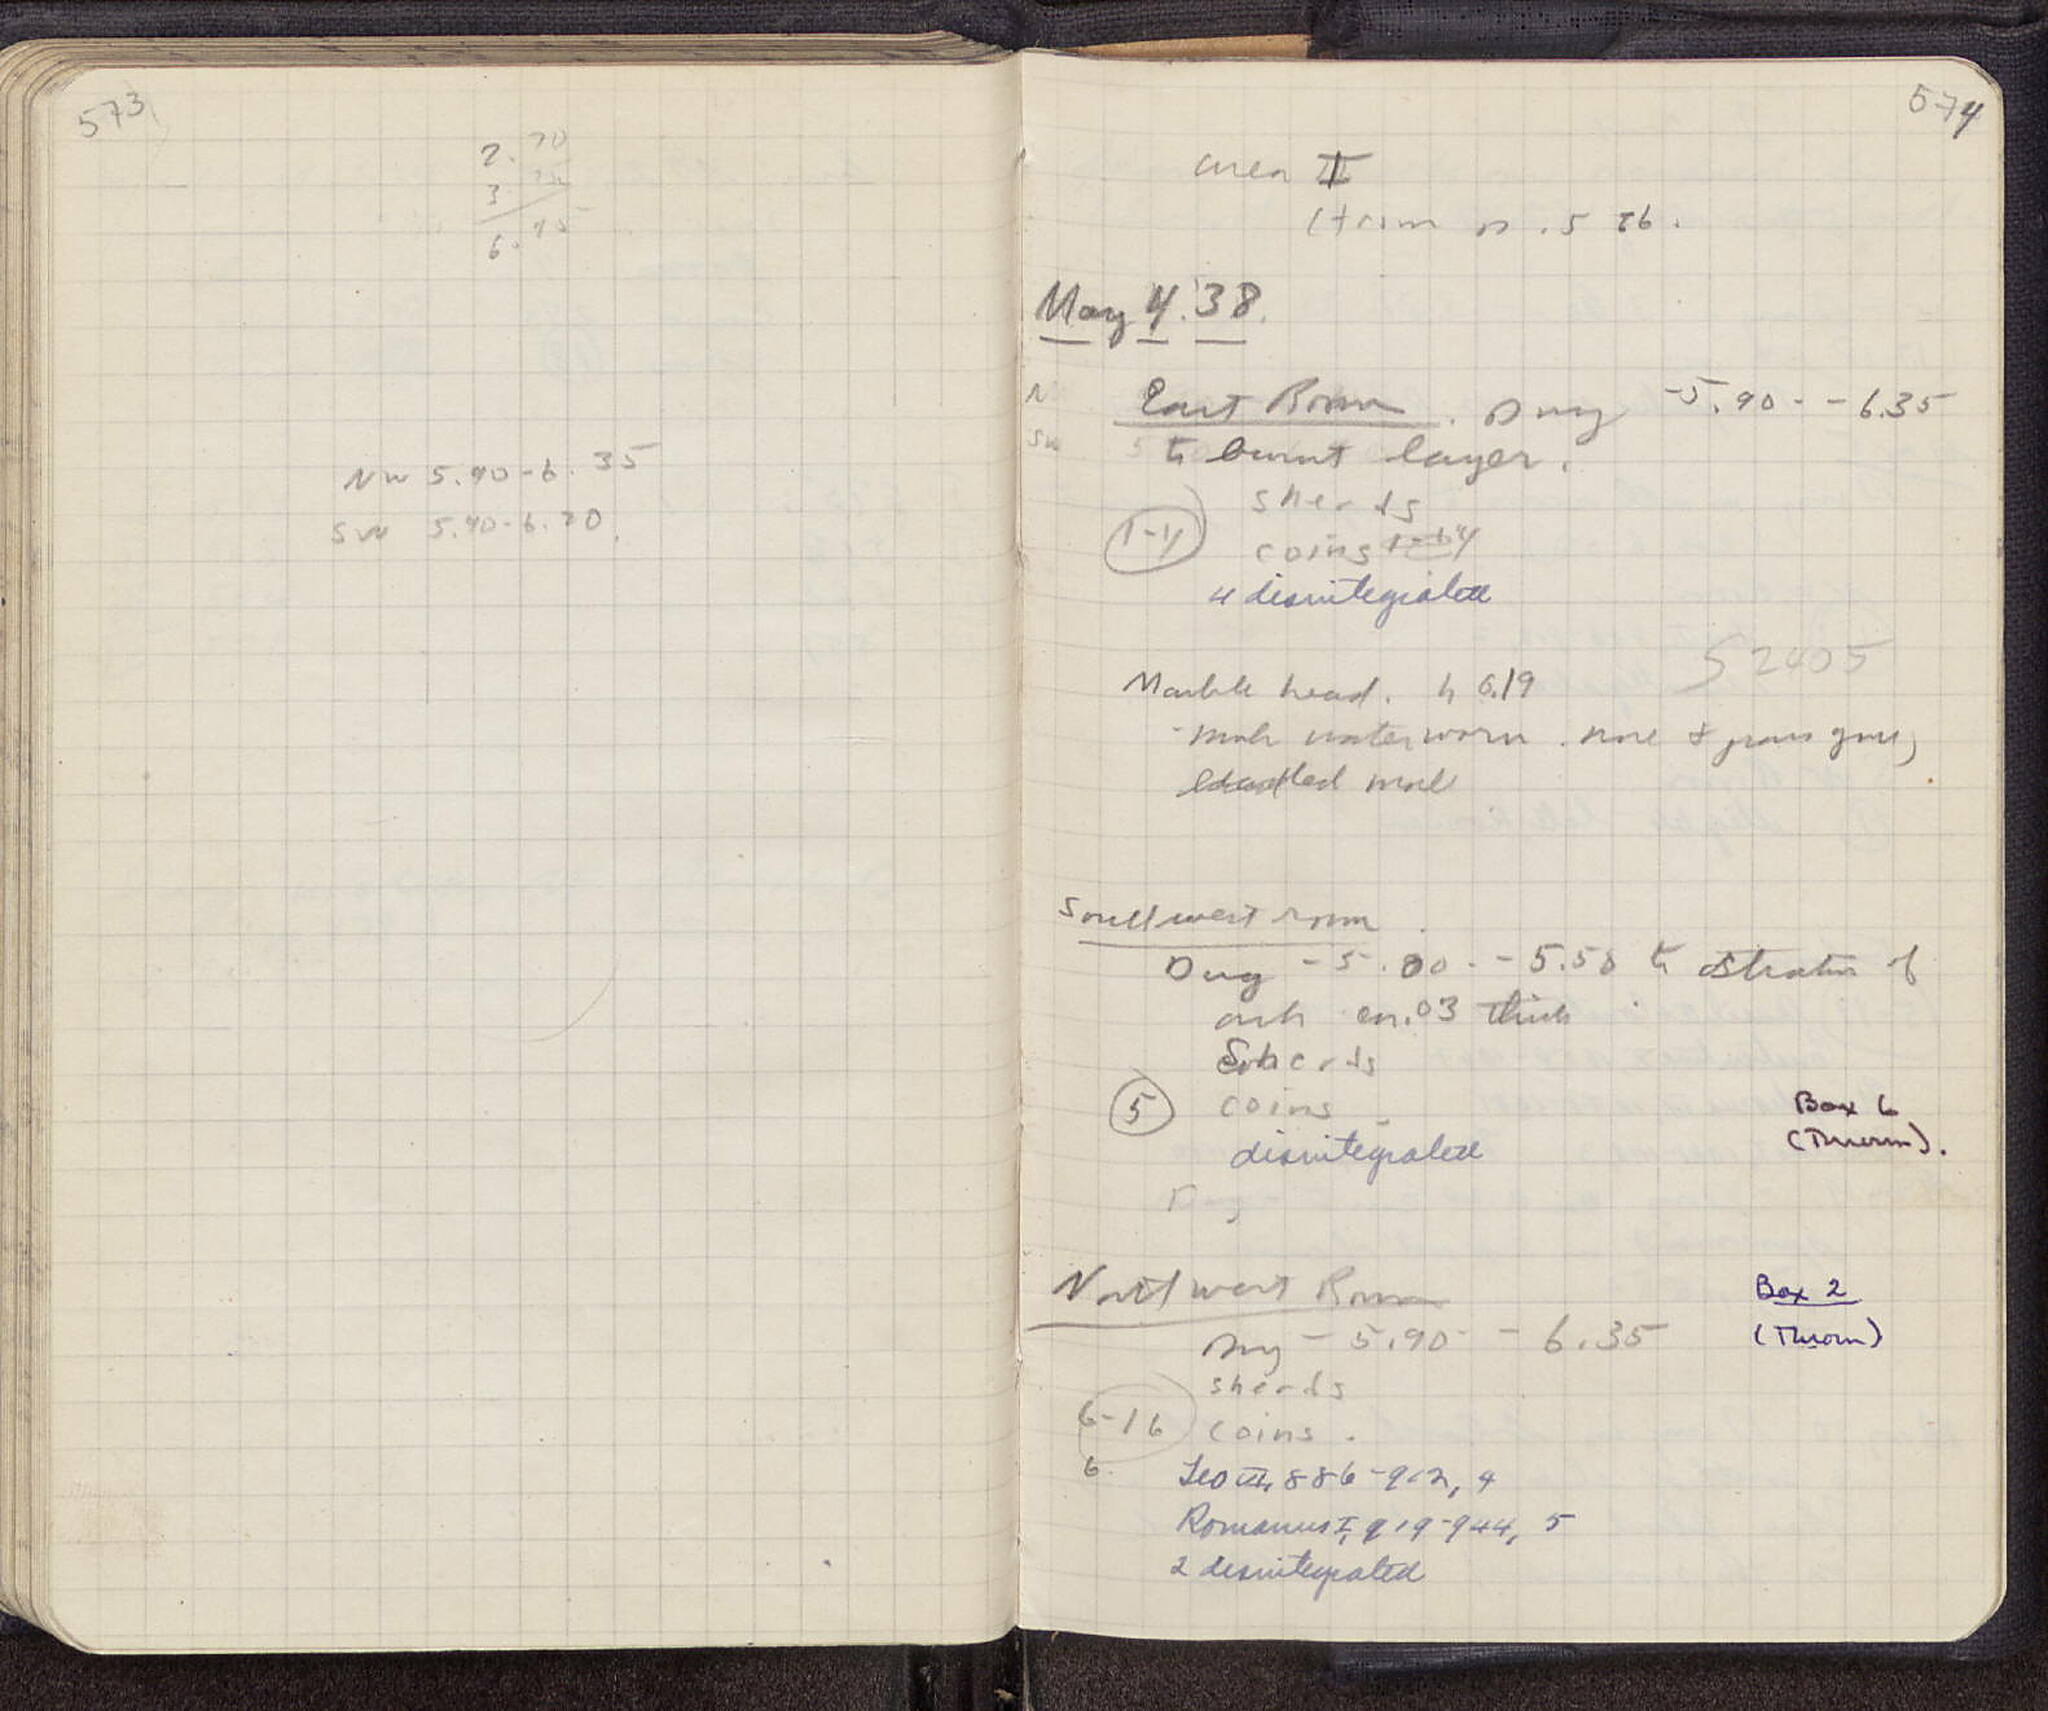 573
2.70
3.25
6.95
NW 5.90-6.35
SW 5.90-6.20
574
area II
(from p. 5 76.
May 4.38.
N
East Room. Dug -5.90 - -6.35
SW
to burnt layer.
sherds
1-4
coins
4 disintegrated
S 2405
Marble head. h 0.19
much waterworn. nose & gone,
Southwest room
Dug -5.00 - -5.50 to stratum of
ash ca .03 thick
Sherds
5
coins
Box 6
(Thrown).
disintegrated
Dug
Northwest Room
Box 2
(Thrown)
Dug -5.90 - -6.35
sherds
6-16 coins.
6. Leo VI, 886-912, 4
Romanus I, 919-944, 5
2 disintegrated